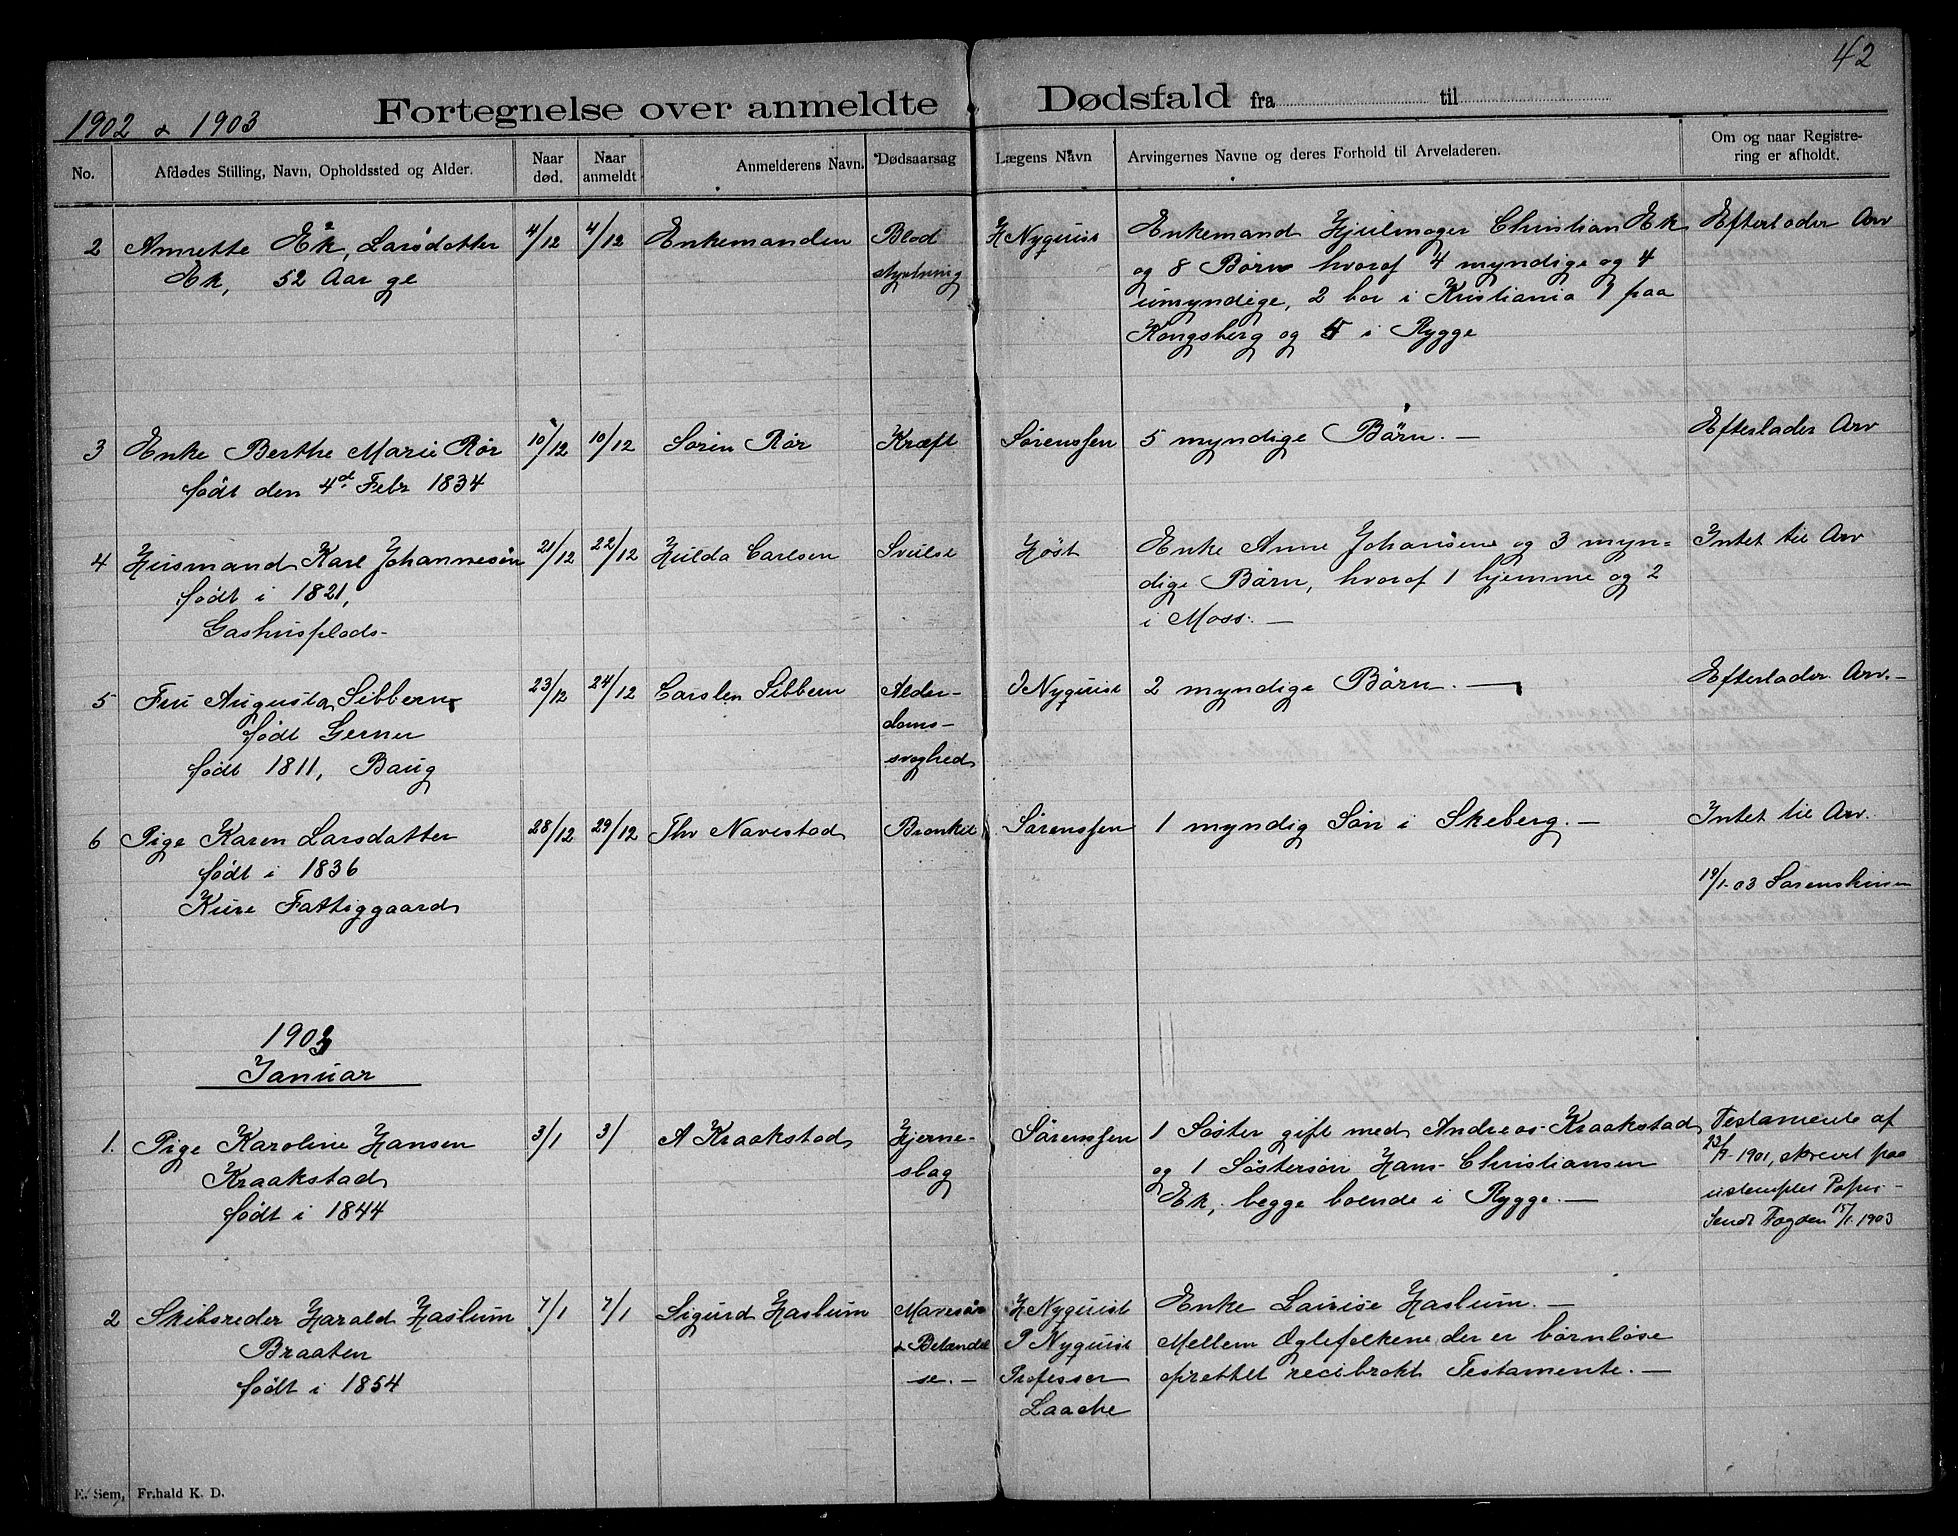 42
1902 & 1903
Fortegnelse over anmeldte Dødsfald fra til
No.
Afdødes Stilling, Navn, Opholdssted og Alder.
Naar død.
Naar anmeldt
Anmelderens Navn.
Dødsaarsag
Lægens Navn
Arvingernes Navne og deres Forhold til Arveladeren.
Om og naar Registrering er afholdt.
2
Annette Ek, Larsdatter
Ek, 52 Aar ge
4/12
4/12
Enkemanden
Blod
styrtning
H Nyquist
Enkemand Hjulmager Christian Ek
og 8 Børn hvoraf 4 myndige og 4
umyndige, 2 bor i Kristiania 1 paa
Kongsberg og 5 i Rygge
Efterlader Arv
3
Enke Berthe Marie Rør
født den 4d Febr 1834
10/12
10/12
Søren Rør
Kræft
Sørenssen
5 myndige Børn. —
Efterlader Arv
4
Husmand Karl Johannesøn
født i 1821,
Gashusplads-
21/12
22/12
Hulda Carlsen
Svulst
Høst
Enke Anne Johansen og 3 myn=
dige Børn, hvoraf 1 hjemme og 2
i Moss. —
Intet til Arv
5
Fru Augusta Sibbern
født Gerner
født 1811, Baug
23/12
24/12
Carsten Sibbern
Alder-
doms-
svaghed
I Nyquist
2 myndige Børn. —
Efterlader Arv. —
6
Pige Karen Larsdatter
født i 1836
Kure Fattiggaard
28/12
29/12
Thv Navestad
Bronkit
Sørenssen
1 myndig Søn i Skeberg. —
Intet til Arv.
19/1-03 Sorenskriven
1903
Januar
1.
Pige Karoline Hansen
Kraakstad
født i 1844
3/1
3/
A Kraakstad
Hjerne-
slag
Sørenssen
1 Søster gift med Andreas Kraakstad
og 1 Søstersøn Hans Christiansen
Ek, begge boende i Rygge. —
Testamente af
1901, skrevet paa
ustemplet Papir -
Sendt Fogden 15/1 1903
2
Skibsreder Harald Haslum
Braaten
født i 1854
7/1
7/1
Sigurd Haslum
Mavesår
& Betændel
se. —
H Nyquist
P Nyquist
Professor
Laache
Enke Lauise Haslum. —
Mellem Ægtefolkene der er børnløse
oprettet recibrokt Testamente. —
E. Sem, Fr.hald K. D.